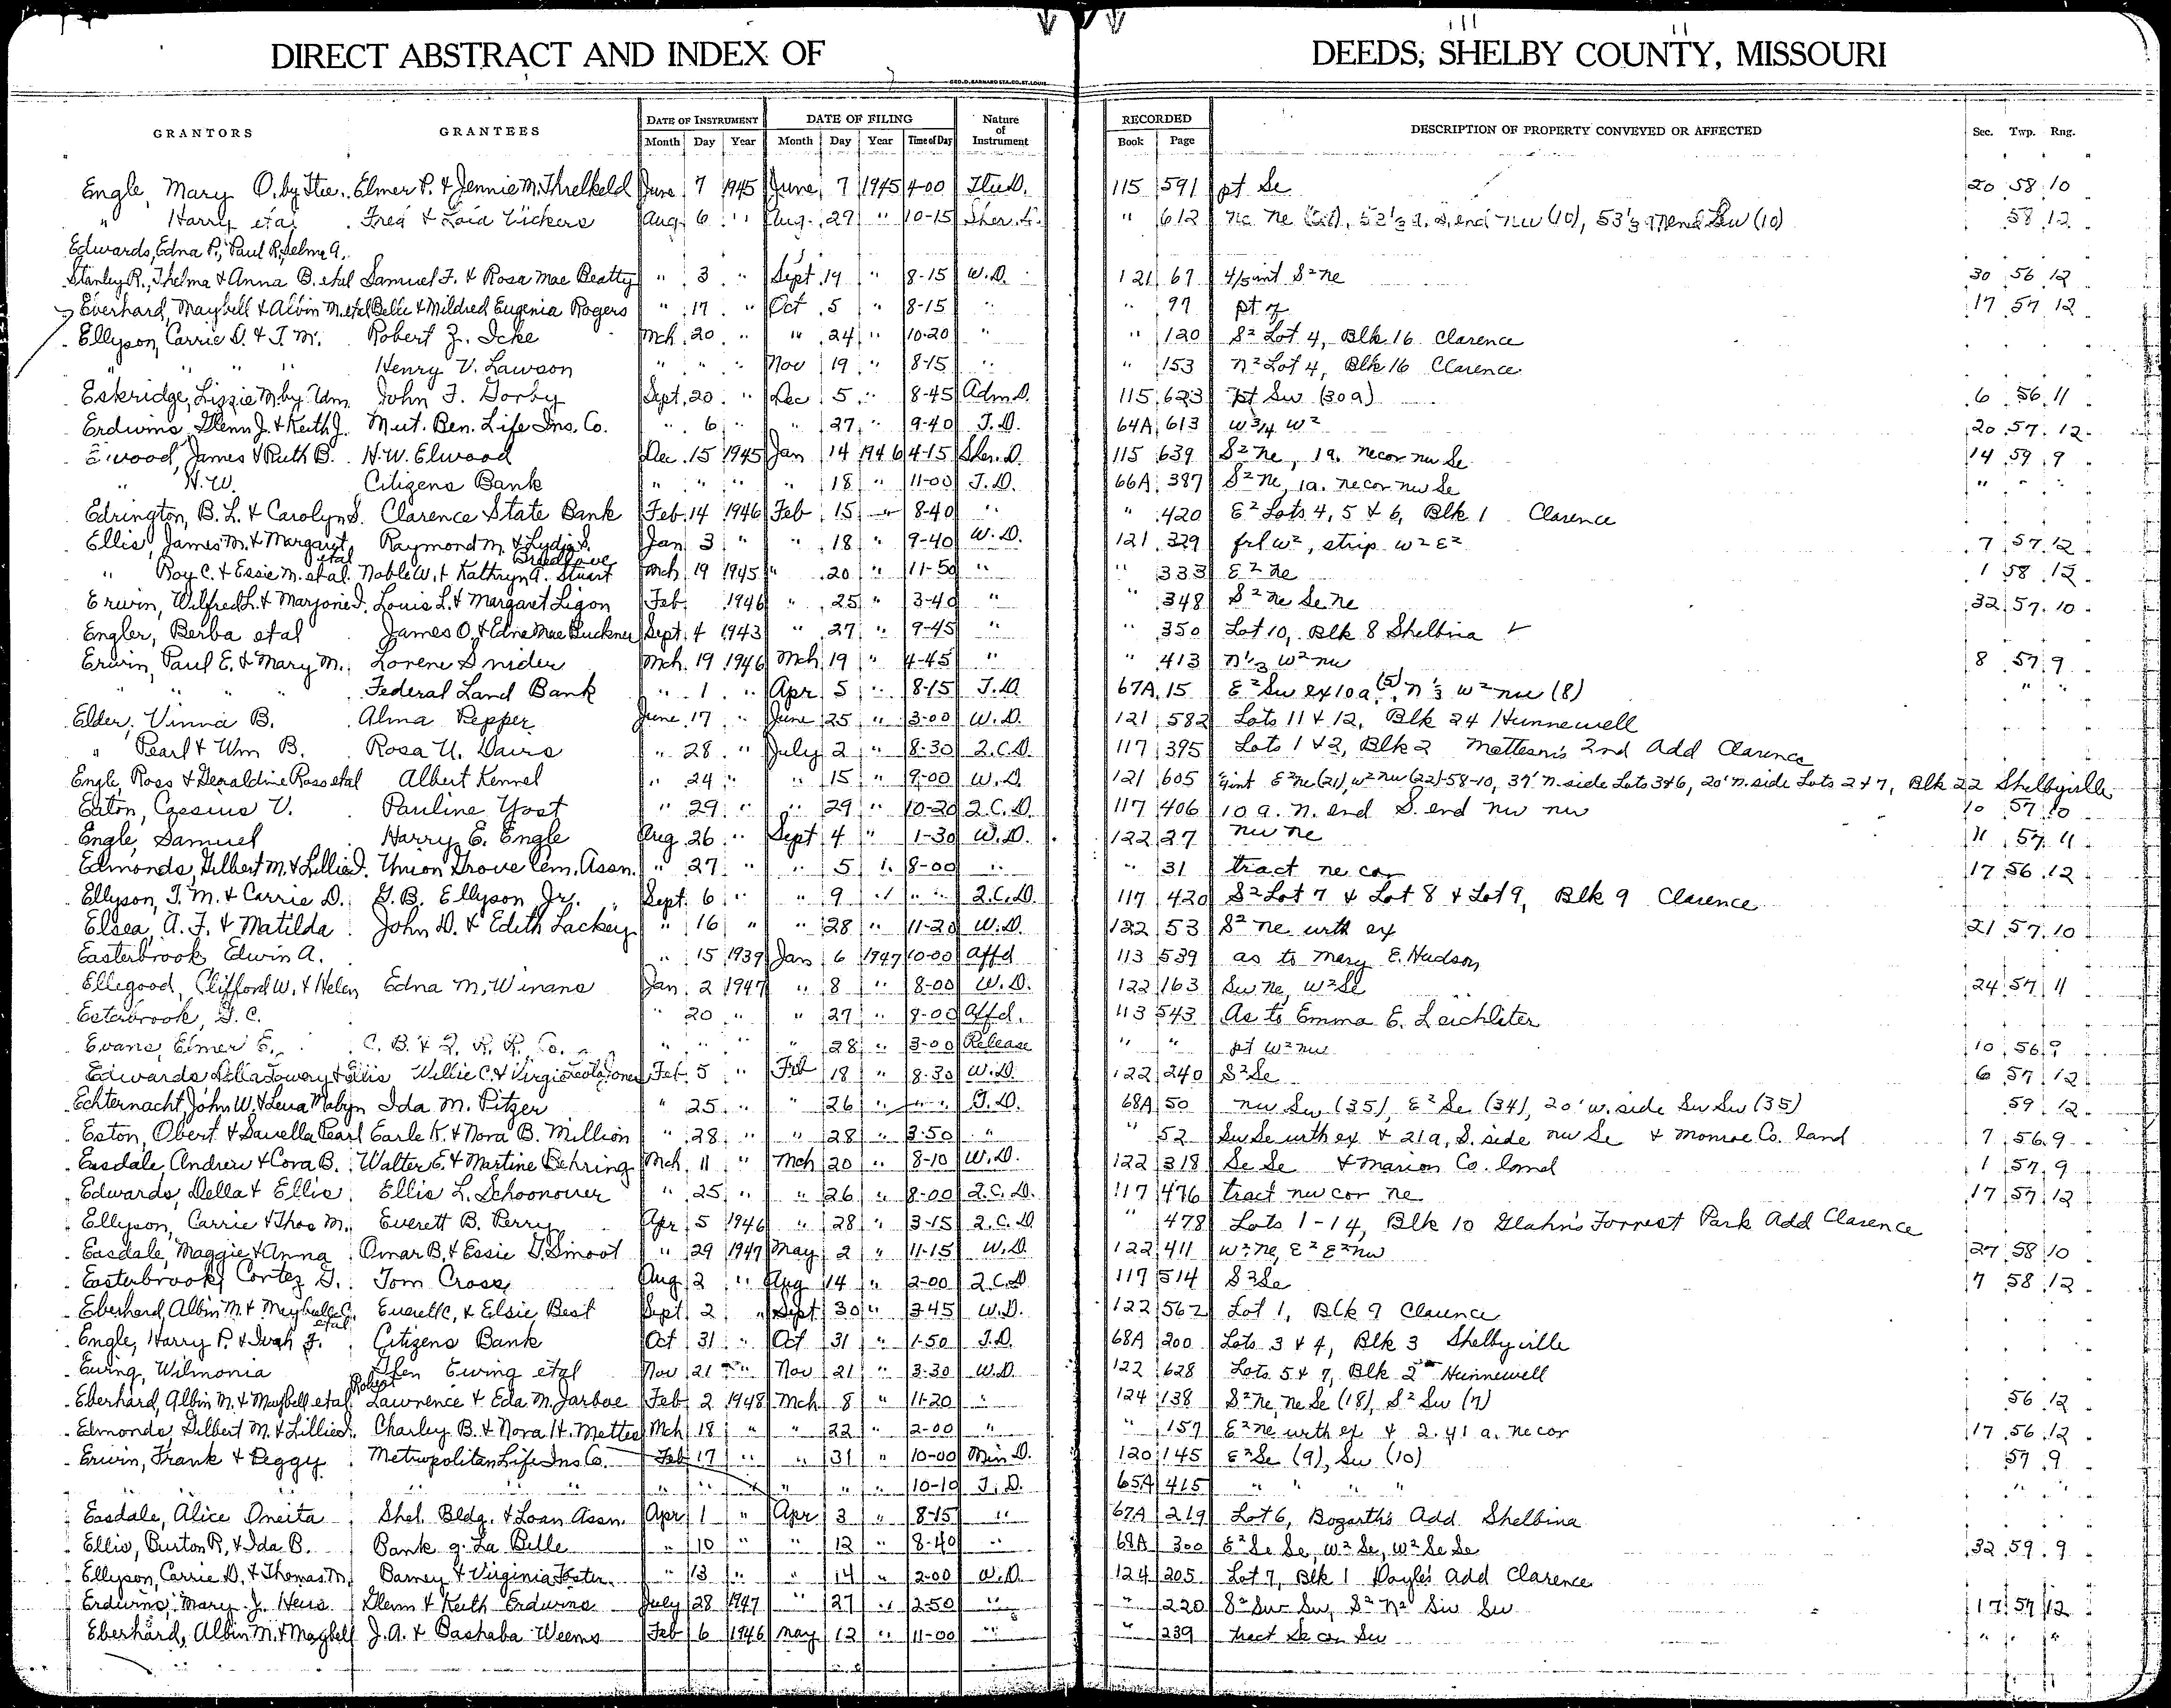 DIRECT ABSTRACT AND INDEX OF DEEDS, SHELBY COUNTY, MISSOURI
GEO. D. BARNARD STA. CO. ST. LOUIS
GRANTORS GRANTEES DATE OF INSTRUMENT DATE OF FILING Nature of Instrument RECORDED DESCRIPTION OF PROPERTY CONVEYED OR AFFECTED Sec. Twp. Rng.
Month Day Year Month Day Year Time of Day Book Page
Engle, Mary O. by Elmer P. & Jennie M. Threlkeld June 7 1945 June 7 1945 4-00 115 591 pt Se 20 58 10
" Harry etal Fred & Vickers Aug 6 " Aug. 29 " 10-15 " 612 58 12
Edwards, Edna P., Paul R, Selma A.
Stanley R., Thelma & Anna B. etal Samuel F. & Rosa Mae Beatty " 3 " Sept 14 " 8-15 W.D. 121 67 4/5 int S² ne 30 56 12
Everhard, Maybell & Alvin M. etal & Mildred Eugenia Rogers " 17 " Oct 5 " 8-15 " " 97 pt of 17 57 12
Ellyson, Carrie D. & T. M. Robert Z. Icke Mch 20 " " 24 " 10-20 " " 120 S² Lot 4, Blk 16 Clarence
" " " Henry V. Lawson " " " Nov 19 " 8-15 " " 153 n² Lot 4, Blk 16 Clarence
Eskridge, Lizzie M. by Adm John F. Gorby Sept. 20 " Dec 5 " 8-45 Adm D. 115 623 pt Sw (30a) 6 56 11
Erdwins, Glenn J. & Keith J. Mut. Ben. Life Ins. Co. " 6 " " 27 " 9-40 T.D. 64A 613 W 3/4 W² 20 57 12
Elwood, James & Ruth B. H. W. Elwood Dec. 15 1945 Jan 14 1946 4-15 Sher. D. 115 639 S² ne, 1a. necor nw Se 14 59 9
" H.W. Citizens Bank " " " " 18 " 11-00 T.D. 66A 387 S² ne, 1a. necor nw Se " " "
Edrington, B. L. & Carolyn S. Clarence State Bank Feb. 14 1946 Feb 15 " 8-40 " " 420 E² Lots 4, 5 & 6, Blk 1 Clarence
Ellis, James M. & Margaret etal Raymond M. & Lydia S. Breedlove Jan 3 " " 18 " 9-40 W.D. 121 329 frl W², strip W² E² 7 57 12
" Roy C. & Essie M. etal. Noble W. & Kathryn A. Stuart Mch 19 1945 " 20 " 11-50 " " 333 E² ne 1 58 12
Erwin, Wilfred L. & Marjorie J. Louis L. & Margaret Ligon Feb. 1946 " 25 " 3-40 " " 348 S² ne Se ne 32 57 10
Engler, Berba etal James O. & Edna Mae Buckner Sept. 4 1943 " 27 " 9-45 " " 350 Lot 10, Blk 8 Shelbina
Erwin, Paul E. & Mary M. Lorene Snider Mch. 19 1946 Mch 19 " 4-45 " " 413 n⅓ W² nw 8 57 9
" " " Federal Land Bank " 1 " Apr 5 " 8-15 T.D. 67A 15 E² Sw ex 10a (5), n⅓ W² nw (8) " "
Elder, Vinna B. Alma Pepper June 17 " June 25 " 3-00 W.D. 121 582 Lots 11 & 12, Blk 24 Hunnewell
" Pearl & Wm B. Rosa U. Davis " 28 " July 2 " 8-30 2.C.D. 117 395 Lots 1 & 2, Blk 2 Matteson's 2nd Add Clarence
Engle, Ross & Geraldine Ross etal Albert Kennel " 24 " " 15 " 9-00 W.D. 121 605 E² ne (21), W² nw (22)-58-10, 37' n. side Lots 3&6, 20' n. side Lots 2 & 7, Blk 22 Shelbyville
Eaton, V. Pauline Yost " 29 " " 29 " 10-20 2.C.D. 117 406 10 a. n. end S. end nw nw 10 57 10
Engle, Samuel Harry E. Engle Aug 26 " Sept 4 " 1-30 W.D. 122 27 nw ne 11 57 11
Edmonds, Gilbert M. & Lillie J. Union Grove Cem. Assn. " 27 " " 5 " 8-00 " " 31 tract ne cor 17 56 12
Ellyson, T. M. & Carrie D. G. B. Ellyson Jr. Sept. 6 " " 9 " " 2.C.D. 117 420 S² Lot 7 & Lot 8 & Lot 9, Blk 9 Clarence
Elsea, A. F. & Matilda John D. & Edith Lackey " 16 " " 28 " 11-20 W.D. 122 53 S² ne with ex 21 57 10
Easterbrook, Edwin A. " 15 1939 Jan 6 1947 10-00 Affd 113 539 as to Mary E. Hudson
Ellegood, Clifford W. & Helen Edna M. Winans Jan. 2 1947 " 8 " 8-00 W.D. 122 163 Sw ne, W² Se 24 57 11
Esterbrook, G. C. " 20 " " 27 " 8-00 Affd. 113 543 As to Emma E. Leichliter
Evans, Elmer E. C. B. & Q. R. R. Co. " " " " 28 " 3-00 Release " " pt W² nw 10 56 9
Edwards Della Lowery & Ellis Willie C. & Virgie Jones Feb. 5 " Feb 18 " 8-30 W.D. 122 240 S² Se 6 57 12
Echternacht, John W. & Leua Mabyn Ida M. Pitzer " 25 " " 26 " " T.D. 68A 50 nw Sw (35), E² Se (34), 20' w. side Sw Sw (35) 59 12
Eaton, Obert & Sauella Pearl Earle K. & Nora B. Million " 28 " " 28 " 3-50 " " 52 Sw Se with ex & 21a, S. side nw Se & Monroe Co. land 7 56 9
Easdale, Andrew & Cora B. Walter E. & Martine Behring Mch 11 " Mch 20 " 8-10 W.D. 122 318 Se Se & Marion Co. land 1 57 9
Edwards, Della & Ellis Ellis L. Schoonover " 25 " " 26 " 8-00 2.C.D. 117 476 tract nw cor ne 17 57 12
Ellyson, Carrie & Thos M. Everett B. Perry Apr 5 1946 " 28 " 3-15 2.C.D. " 478 Lots 1-14, Blk 10 Glahn's Forrest Park Add Clarence
Easdale, Maggie & Anna Omar B. & Essie G. Smoot " 29 1947 May 2 " 11-15 W.D. 122 411 W² ne, E² E² nw 27 58 10
Easterbrook, Cortez G. Tom Cross Aug 2 " Aug 14 " 2-00 2.C.D 117 514 S² Se 7 58 12
Eberhard, Albin M. & Maybelle C. etal Everett C. & Elsie Best Sept 2 " Sept 30 " 3-45 W.D. 122 562 Lot 1, Blk 9 Clarence
Engle, Harry P. & Ivah F. Citizens Bank Oct 31 " Oct 31 " 1-50 T.D. 68A 200 Lots 3 & 4, Blk 3 Shelbyville
Ewing, Wilmonia Glen Ewing etal Nov 21 " Nov 21 " 3-30 W.D. 122 628 Lots 5 & 7, Blk 2 Hunnewell
Eberhard, Albin M. & Maybell etal Robert Lawrence & Eda M. Jarboe Feb 2 1948 Mch 8 " 11-20 " 124 138 S² ne, ne Se (18), S² Sw (7) 56 12
Edmonds, Gilbert M. & Lillie J. Charley B. & Nora H. Mettes Mch 18 " " 22 " 2-00 " " 157 E² ne with ex & 2.41 a. ne cor 17 56 12
Erwin, Frank & Peggy Metropolitan Life Ins Co. Feb 17 " " 31 " 10-00 Min D. 120 145 E² Se (9), Sw (10) 57 9
" " " " " " " " " " 10-10 T.D. 65A 415 " " " " " "
Easdale, Alice Oneita Shel. Bldg. & Loan Assn. Apr 1 " Apr 3 " 8-15 " 67A 219 Lot 6, Bogarth's Add Shelbina
Ellis, Burton R. & Ida B. Bank of La Belle " 10 " " 12 " 8-40 " 68A 300 E² Se Se, W² Se, W² Se Se 32 59 9
Ellyson, Carrie D. & Thomas M. Barney & Virginia " 13 " " 14 " 2-00 W.D. 124 205 Lot 7, Blk 1 Doyle's Add Clarence
Erdwins, Mary J. Heirs Glenn & Keith Erdwins July 28 1947 " 27 " 2-50 " " 220 S² Sw Sw, S² n² Sw Sw 17 57 12
Eberhard, Albin M. & Maybell J. A. & Bashaba Weems Feb 6 1946 May 12 " 11-00 " " 239 tract Se cor Sw " " "